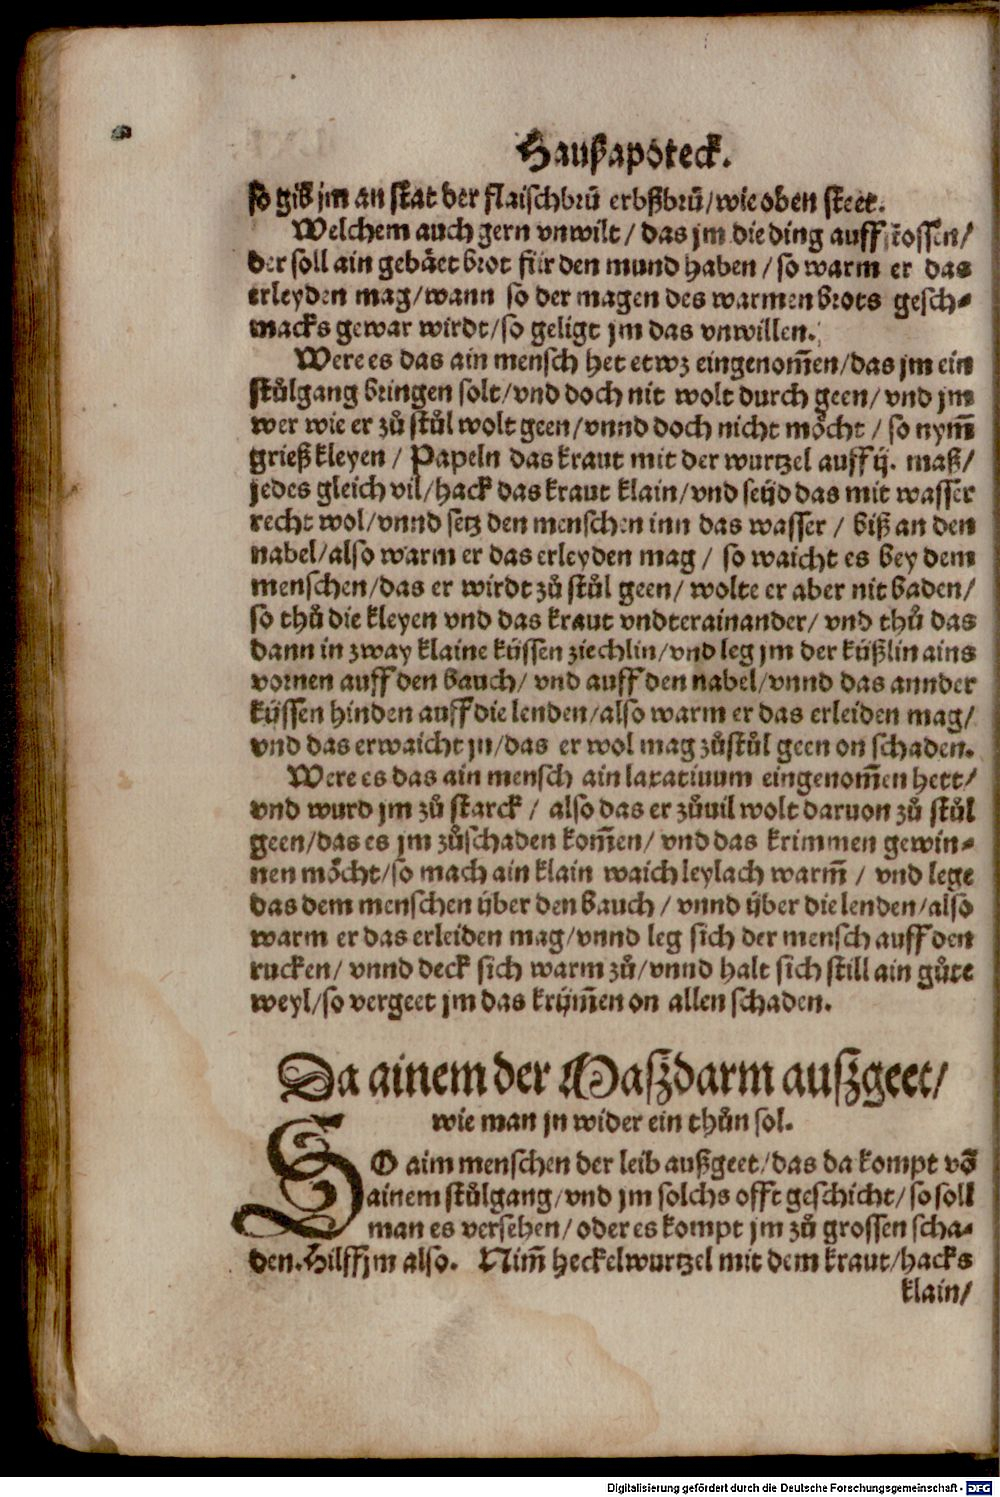 Haußapoteck.
so gib jm an stat der flaischbrů erbßbrů/wie oben steet.
Welchem auch gern vnwilt/ das jm die ding auff stossen/
der soll ain gebäet brot für den mund haben/ so warm er das
erleyden mag/wann so der magen des warmen brots gesch-
macks gewar wirdt/so geligt jm das vnwillen.
Were es das ain mensch het etwz eingenom̃en/das jm ein
stůlgang bringen solt/vnd doch nit wolt durch geen/ vnd jm
wer wie er zů stůl wolt geen/vnnd doch nicht möcht / so nym̃
grieß kleyen / Papeln das kraut mit der wurtzel auff ij. maß/
jedes gleich vil/hack das kraut klain/vnd seüd das mit wasser
recht wol/vnnd setz den menschen inn das wasser / biß an den
nabel/also warm er das erleyden mag / so waicht es bey dem
menschen/das er wirdt zů stůl geen/ wolte er aber nit baden/
so thů die kleyen vnd das kraut vndterainander/ vnd thů das
dann in zway klaine küssen ziechlin/vnd leg jm der küßlin ains
vornen auff den bauch/ vnd auff den nabel/vnnd das annder
küssen hinden auff die lenden/also warm er das erleiden mag/
vnd das erwaicht jn/das er wol mag zůstůl geen on schaden.
Were es das ain mensch ain laxatiuum eingenom̃en hett/
vnd wurd jm zů starck / also das er zůuil wolt daruon zů stůl
geen/das es jm zůschaden kom̃en/ vnd das krimmen gewin-
nen möcht/so mach ain klain waich leylach warm̃ / vnd lege
das dem menschen über den bauch / vnnd über die lenden/also
warm er das erleiden mag/vnnd leg sich der mensch auff den
rucken/ vnnd deck sich warm zů/vnnd halt sich still ain gůte
weyl/so vergeet jm das krüm̃en on allen schaden.
Da ainem der Maszdarm auszgeet/
wie man jn wider ein thůn sol.
SO aim menschen der leib außgeet/das da kompt võ
ainem stůlgang/vnd jm solchs offt geschicht/so soll
man es versehen/ oder es kompt jm zů grossen scha-
den. Hilff jm also. Nim̃ heckelwurtzel mit dem kraut/hacks
klain/
Digitalisierung gefördert durch die Deutsche Forschungsgemeinschaft - DFG